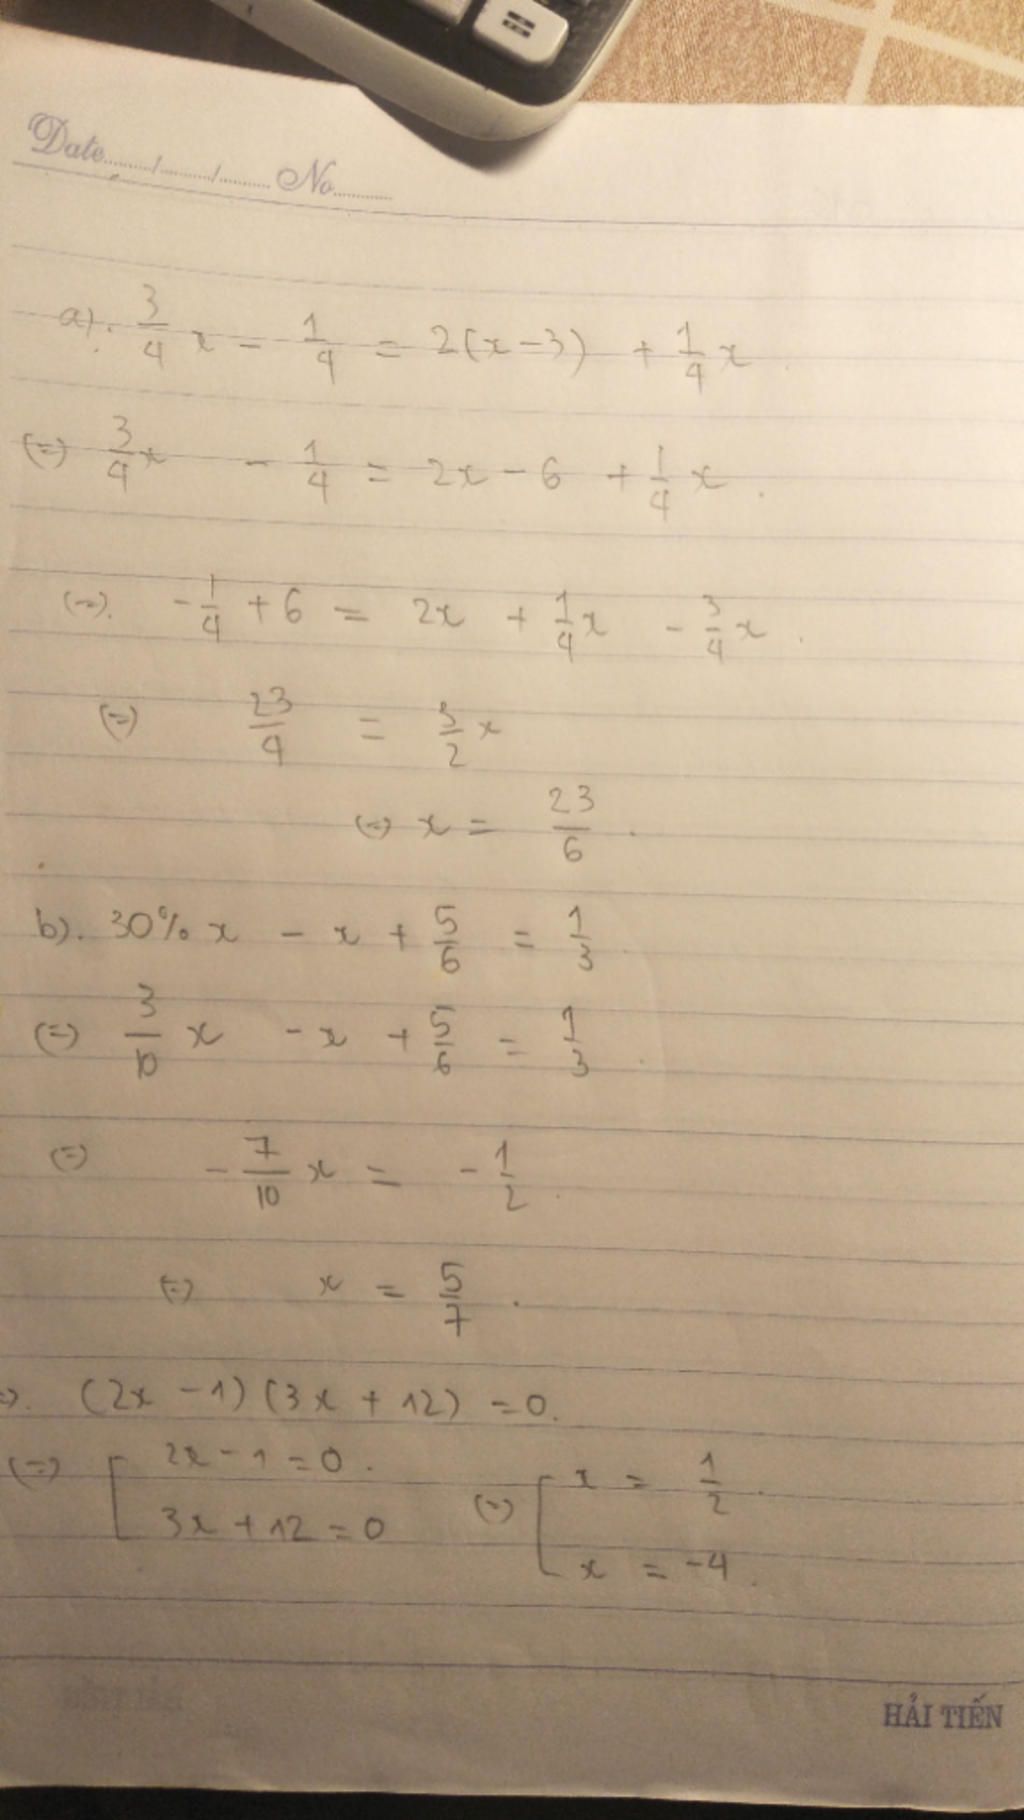 Date....../......./......... No..........
a). 3/4 x - 1/4 = 2(x-3) + 1/4 x
(=) 3/4 x - 1/4 = 2x - 6 + 1/4 x.
(=). -1/4 + 6 = 2x + 1/4 x - 3/4 x.
(=) 23/4 = 3/2 x
(=) x = 23/6.
b). 30% x - x + 5/6 = 1/3
(=) 3/10 x - x + 5/6 = 1/3.
(=) -7/10 x = -1/2.
(=) x = 5/7.
(2x - 1)(3x + 12) = 0.
(=) [ 2x - 1 = 0. (=) [ x = 1/2.
3x + 12 = 0 x = -4.
HẢI TIẾN